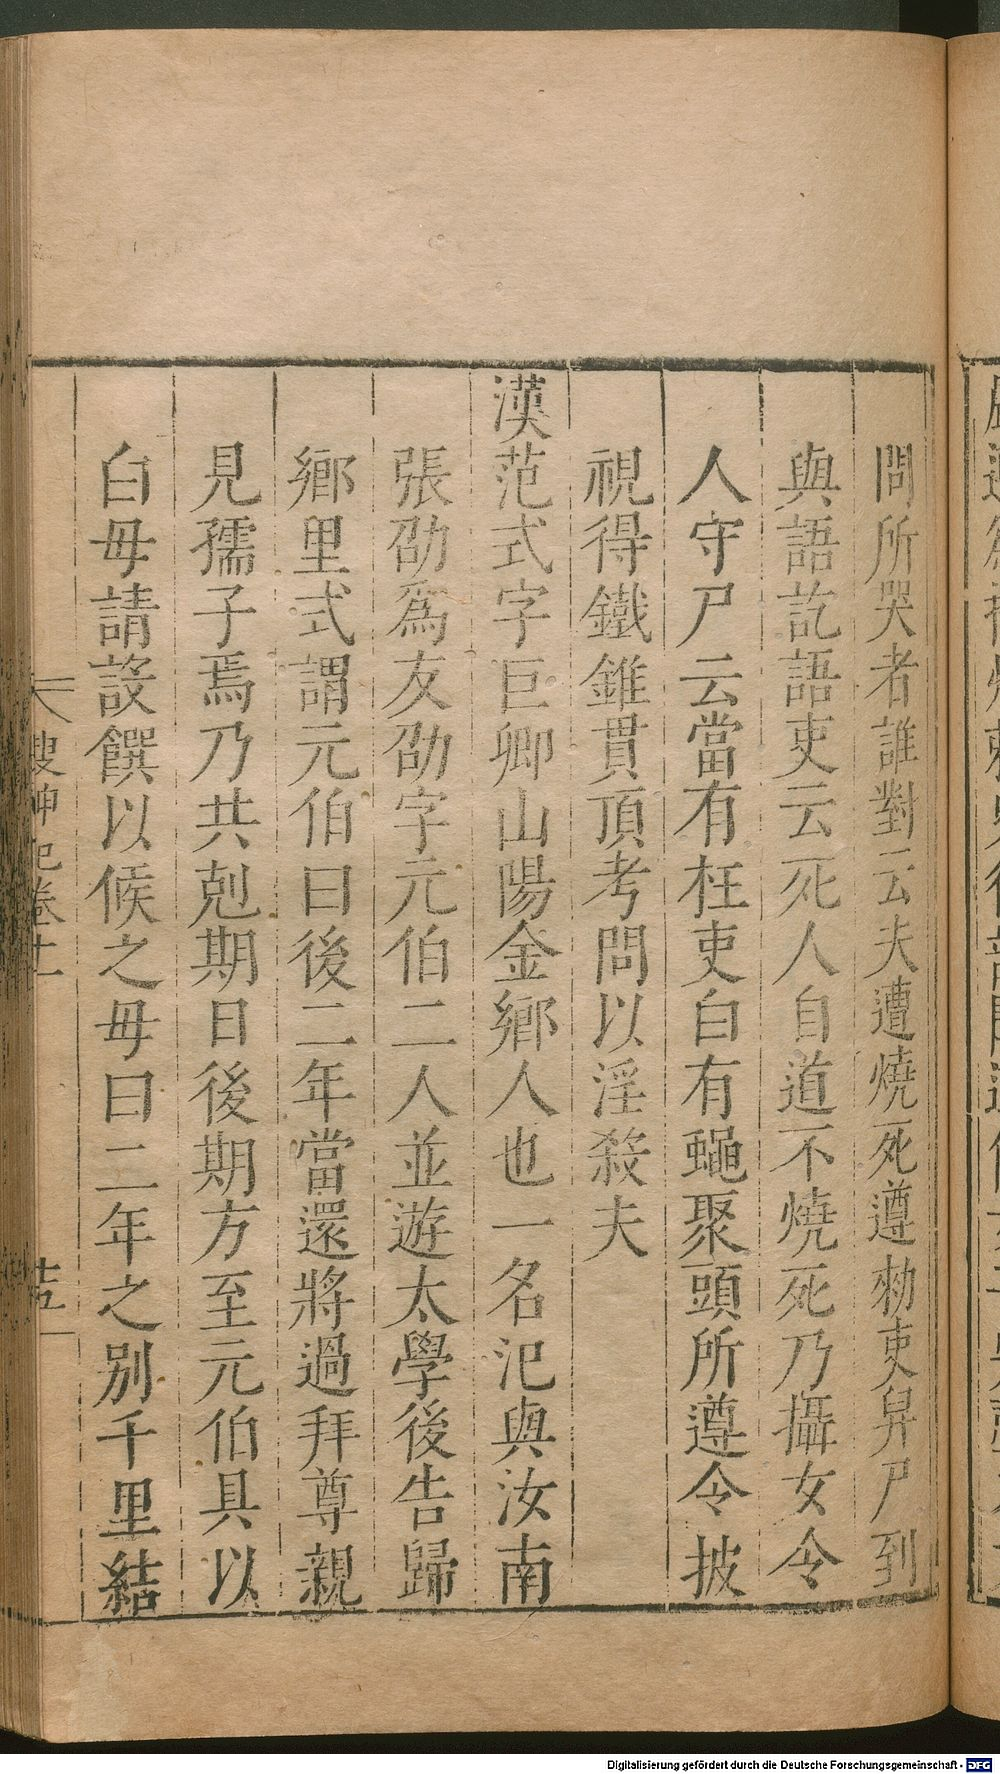 問所哭者誰對云夫遭燒死遵勑吏舁尸到
與語訖語吏云死人自道不燒死乃攝女令
人守尸云當有枉吏白有蠅聚頭所遵令披
視得鐵錐貫頂考問以淫殺夫
漢范式字巨卿山陽金鄉人也一名汜與汝南
張劭爲友劭字元伯二人並遊太學後告歸
鄉里式謂元伯曰後二年當還將過拜尊親
見孺子焉乃共剋期日後期方至元伯具以
白母請設饌以候之母曰二年之別千里結
搜神記卷十一
Digitalisierung gefördert durch die Deutsche Forschungsgemeinschaft - DFG